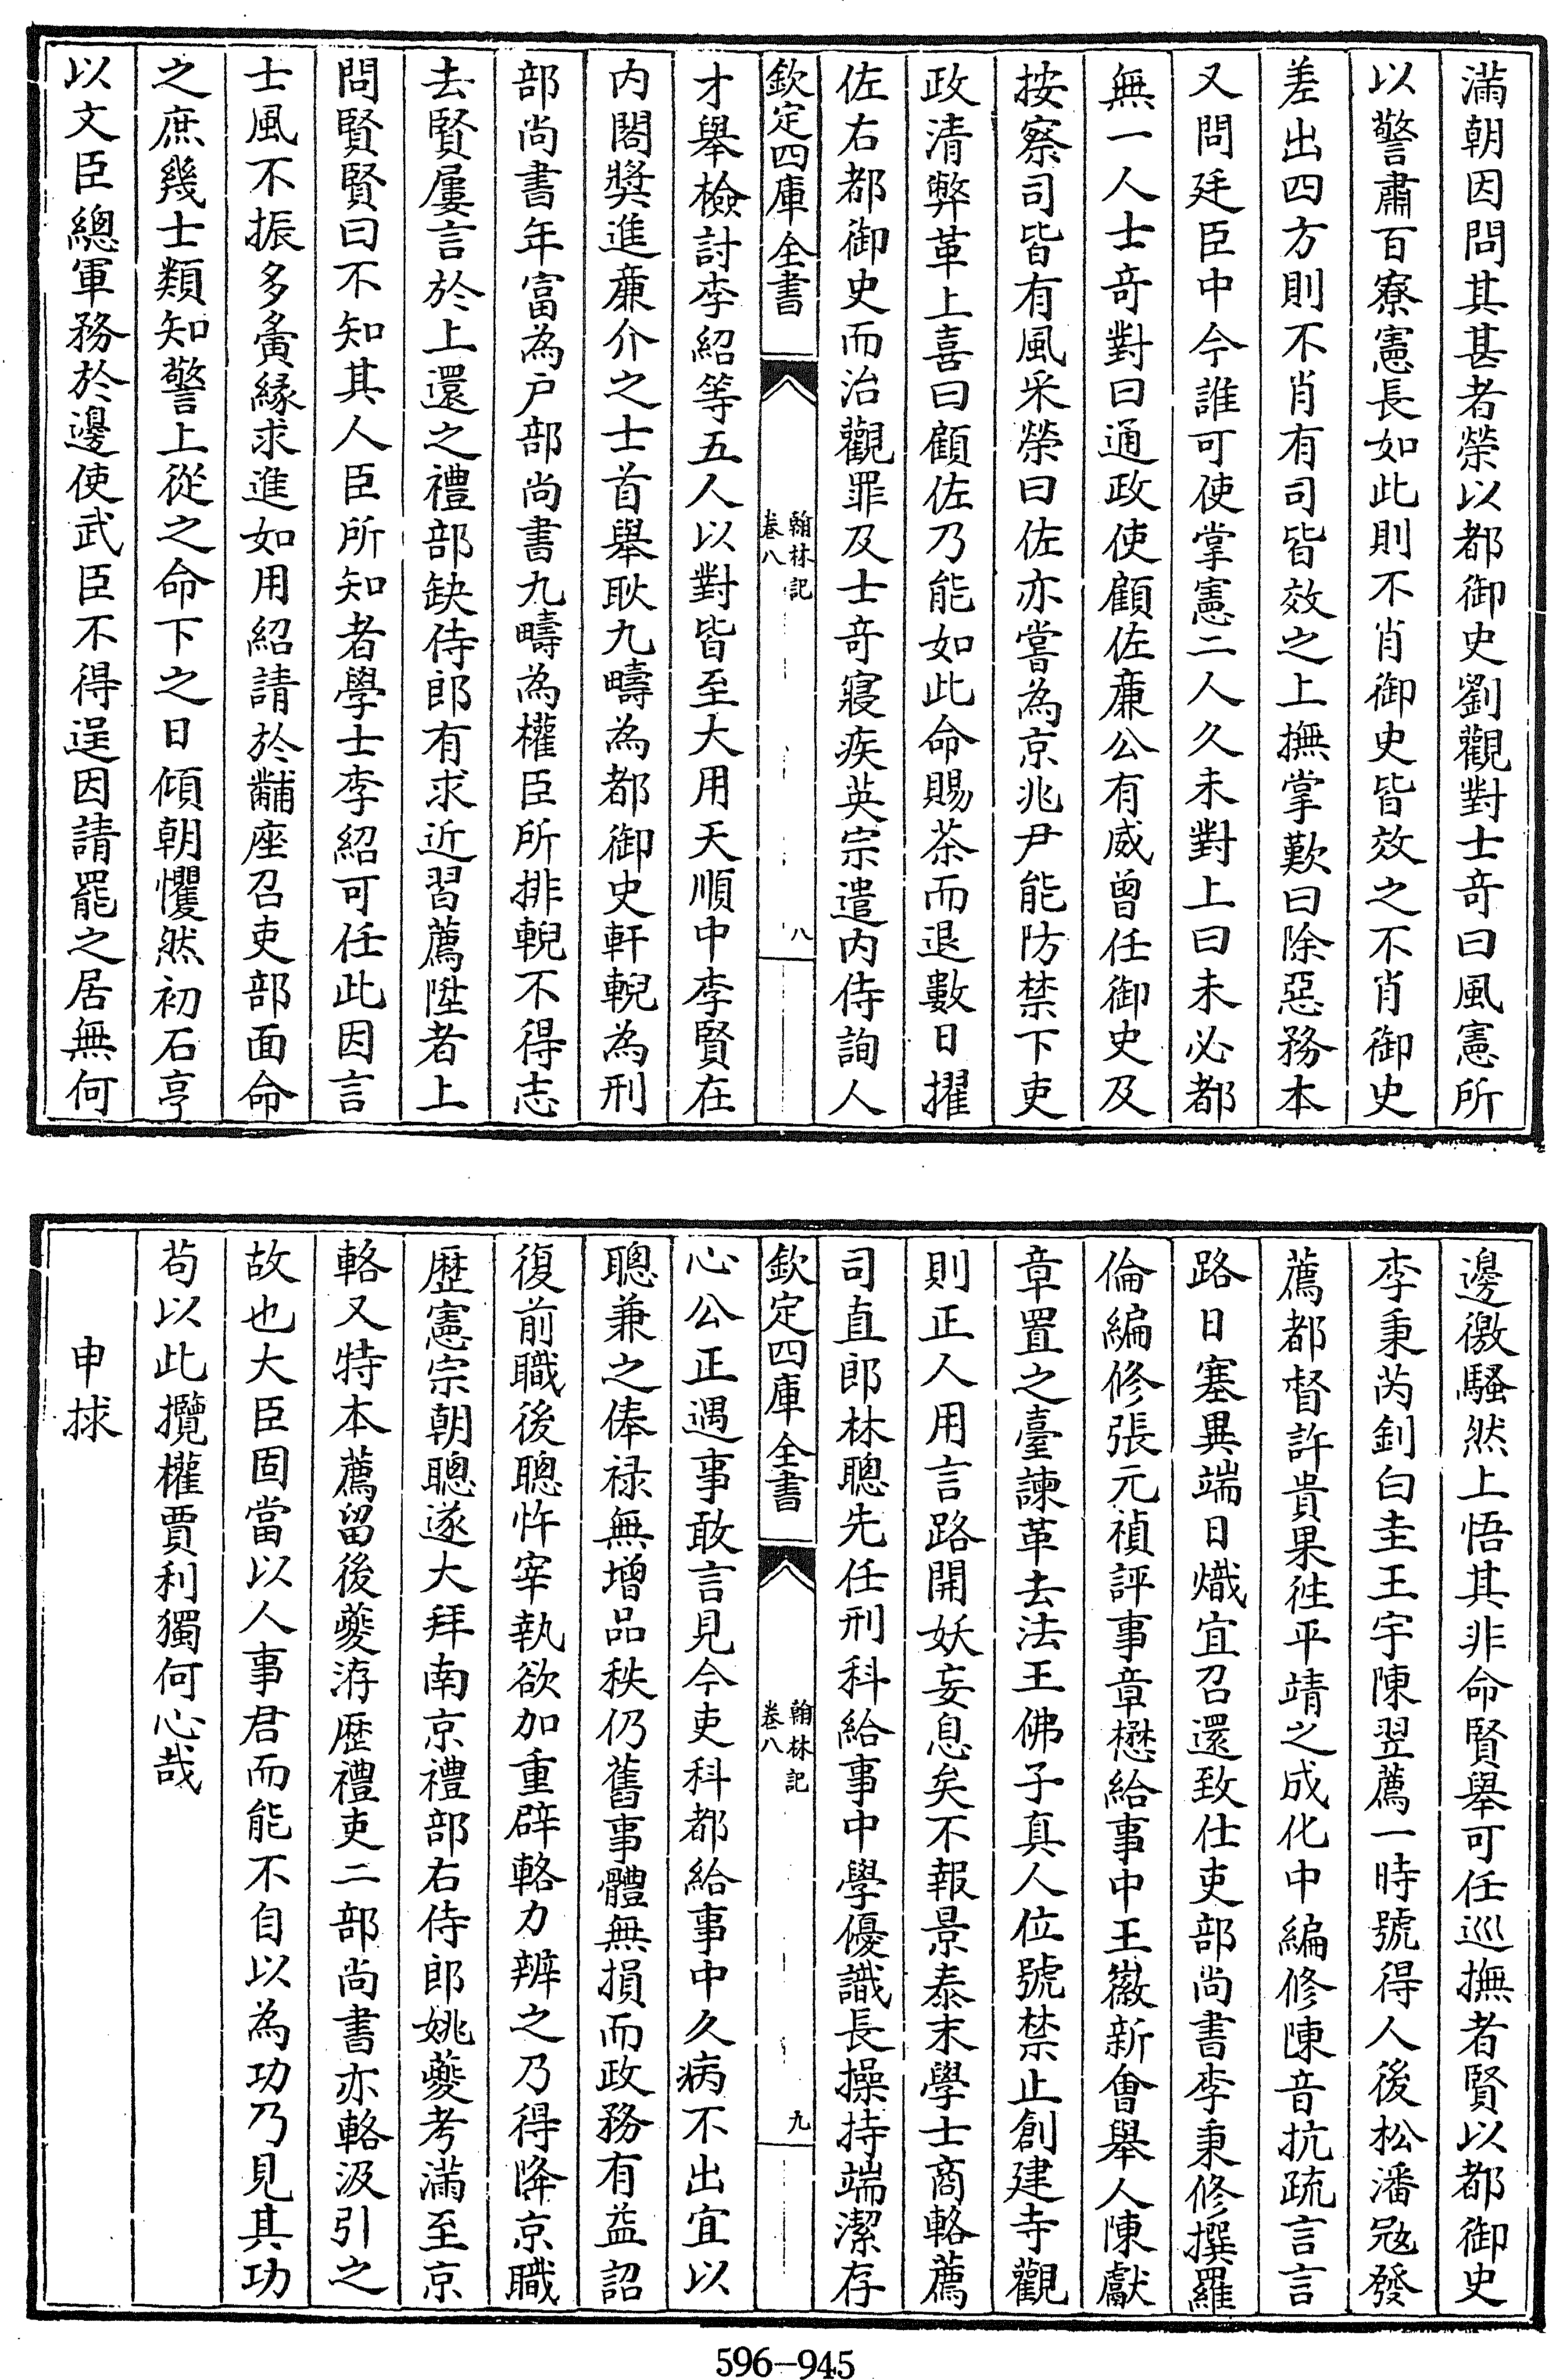 滿朝因問其甚者榮以都御史劉觀對士竒曰風憲所
以警肅百寮憲長如此則不肖御史皆效之不肖御史
差出四方則不肖有司皆效之上撫掌歎曰除惡務本
又問廷臣中今誰可使掌憲二人久未對上曰未必都
無一人士竒對曰通政使顧佐亷公有威曾任御史及
按察司皆有風采榮曰佐亦嘗為京兆尹能防禁下吏
政清弊革上喜曰顧佐乃能如此命賜茶而退數日擢
佐右都御史而治觀罪及士竒寢疾英宗遣内侍詢人
欽定四庫全書
翰林記
卷八
八
才舉檢討李紹等五人以對皆至大用天順中李賢在
内閣奬進亷介之士首舉耿九疇為都御史軒輗為刑
部尚書年富為户部尚書九疇為權臣所排輗不得志
去賢屢言於上還之禮部缺侍郎有求近習薦陞者上
問賢賢曰不知其人臣所知者學士李紹可任此因言
士風不振多夤緣求進如用紹請於黼座召吏部面命
之庶幾士類知警上從之命下之日傾朝懼然初石亨
以文臣總軍務於邊使武臣不得逞因請罷之居無何
邊徼騷然上悟其非命賢舉可任巡撫者賢以都御史
李秉芮釗白圭王宇陳翌薦一時號得人後松潘冦發
薦都督許貴果徃平靖之成化中編修陳音抗疏言言
路日塞異端日熾宜召還致仕吏部尚書李秉修撰羅
倫編修張元禎評事章懋給事中王徽新會舉人陳獻
章置之臺諫革去法王佛子真人位號禁止創建寺觀
則正人用言路開妖妄息矣不報景泰末學士商輅薦
司直郎林聰先任刑科給事中學優識長操持端潔存
欽定四庫全書
翰林記
卷八
九
心公正遇事敢言見今吏科都給事中久病不出宜以
聰兼之俸禄無增品秩仍舊事體無損而政務有益詔
復前職後聰忤宰執欲加重辟輅力辨之乃得降京職
歴憲宗朝聰遂大拜南京禮部右侍郎姚夔考滿至京
輅又特本薦留後夔洊歴禮吏二部尚書亦輅汲引之
故也大臣固當以人事君而能不自以為功乃見其功
茍以此攬權賈利獨何心哉
申捄
596-945